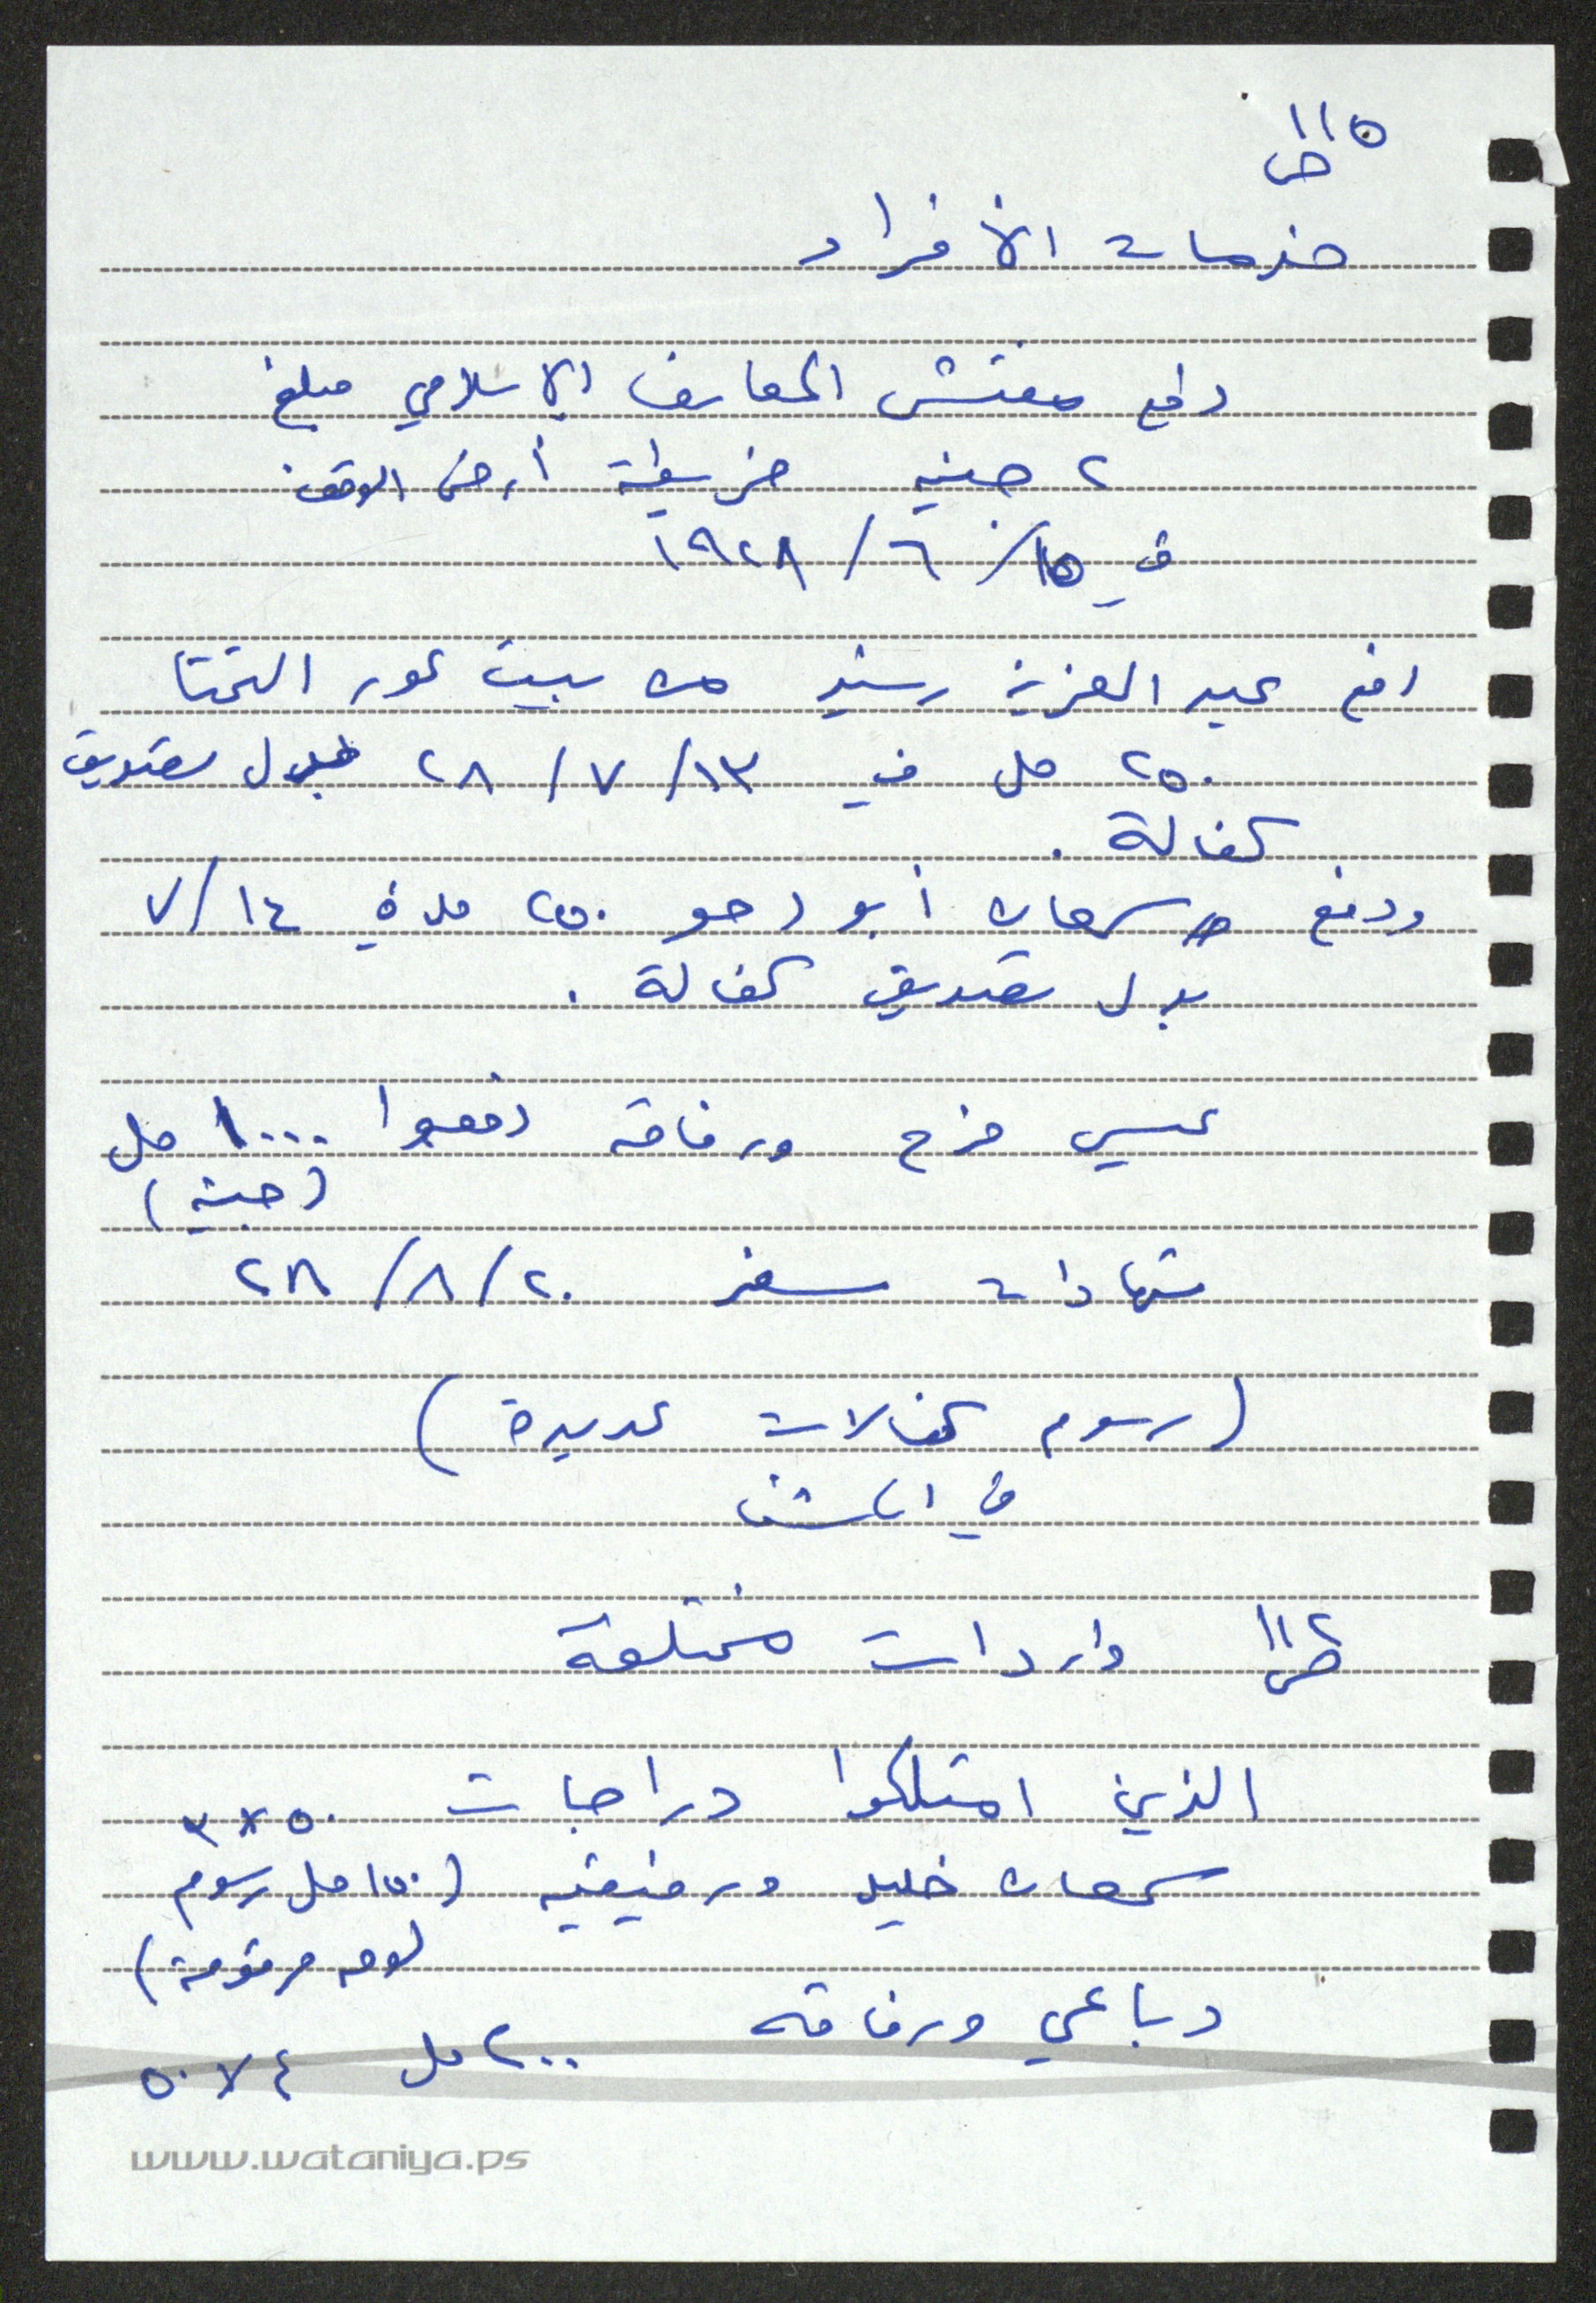 ١١٥
ص
خدمات الأفراد
دفع مفتش المعارف الإسلامي مبلغ
٢ جنيه خريطة أرض الوقف
في ١٥/٦/١٩٢٨
دفع عبد العزيز رشيد من بيت عور التحتا
٢٥٠ مل في ١٣/٧/٢٨ بدل تصديق
كفالة.
ودفع سمعان أبو دحو ٢٥٠ ١٤/٧
بدل تصديق كفالة.
عيسى فرح ورفاقه دفعوا ١٠٠٠ مل
(جنيه)
شهادات سفر ٢٠/٨/٢٨
(رسوم كفالات عديدة)
في
ص ١١٦ واردات مختلفة
الذين امتلكوا دراجات ٥٠×٣
سمعان خليل ورفيقيه (١٥٠ مل رسوم
لوحه مرقومة)
دباعي ورفاقه ٢٠٠ مل ٤×٥٠
www.wataniya.ps